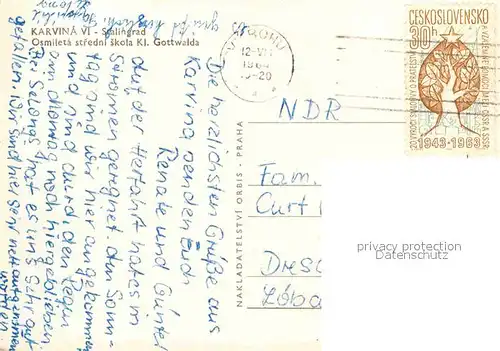 KARVINÁ VI - Stalingrad
Osmiletá střední škola Kl. Gottwalda
Die herzlichsten Grüße aus
Karvina senden Euch
Renate und Günter
Auf der Herfahrt hat es in
Strömen geregnet. Am Sonn-
tag sind wir hier angekommen
und sind durch den Regen
am Montag noch hiergeblieben.
hat es uns sehr gut
gefallen. Wir sind hier sehr nett aufgenommen
worden.
NAKLADATELSTVÍ ORBIS - PRAHA
12.VI
1964
-20
ČESKOSLOVENSKO
30h
20. VÝROČÍ SMLOUVY O PŘÁTELSTVÍ
A VZÁJEMNÉ POMOCI MEZI ČSSR A SSSR
1943-1963
NDR
Fam.
Curt
Löba
privacy protection
watermark